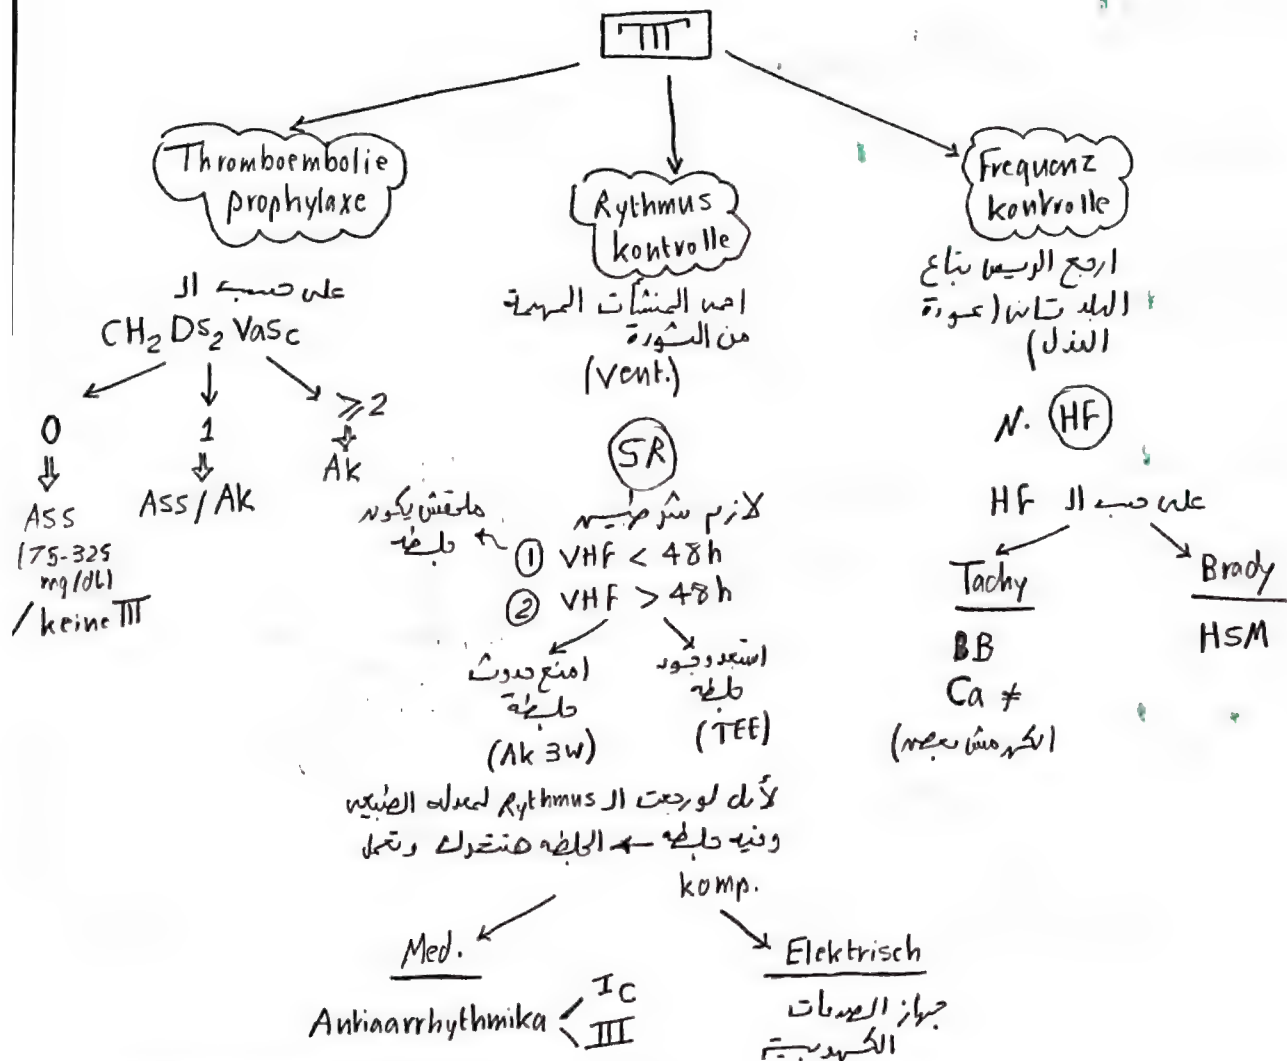 TTT
Thromboembolie
prophylaxe
على حسب ال
CH₂DS₂Vasc
0
Ass
(75-325
mg/dl)
/keine TTT
1
Ass/Ak
≥2
Ak
Rythmus
kontrolle
احمى المنشأت المهمة
من الثورة
(Vent.)
SR
لازم شرطين
① VHF < 48h
ملحقش يكون
جلطه
② VHF > 48h
امنع حدوث
جلطة
(Ak 3W)
استبعد وجود
جلطه
(TEE)
لأن لو رجعت ال Rythmus لمعدله الطبيعى
وفيه جلطه ← الجلطه هتتحرك وتعمل
komp.
Med.
Antiaarrhythmika
IC
III
Elektrisch
جهاز الصدمات
الكهربية
Frequenz
kontrolle
ارجع الريس بتاع
البلد تانى (عودة
الندل)
N. HF
على حسب ال HF
Tachy
BB
Ca ≠
(لكن مش بعض)
Brady
HSM